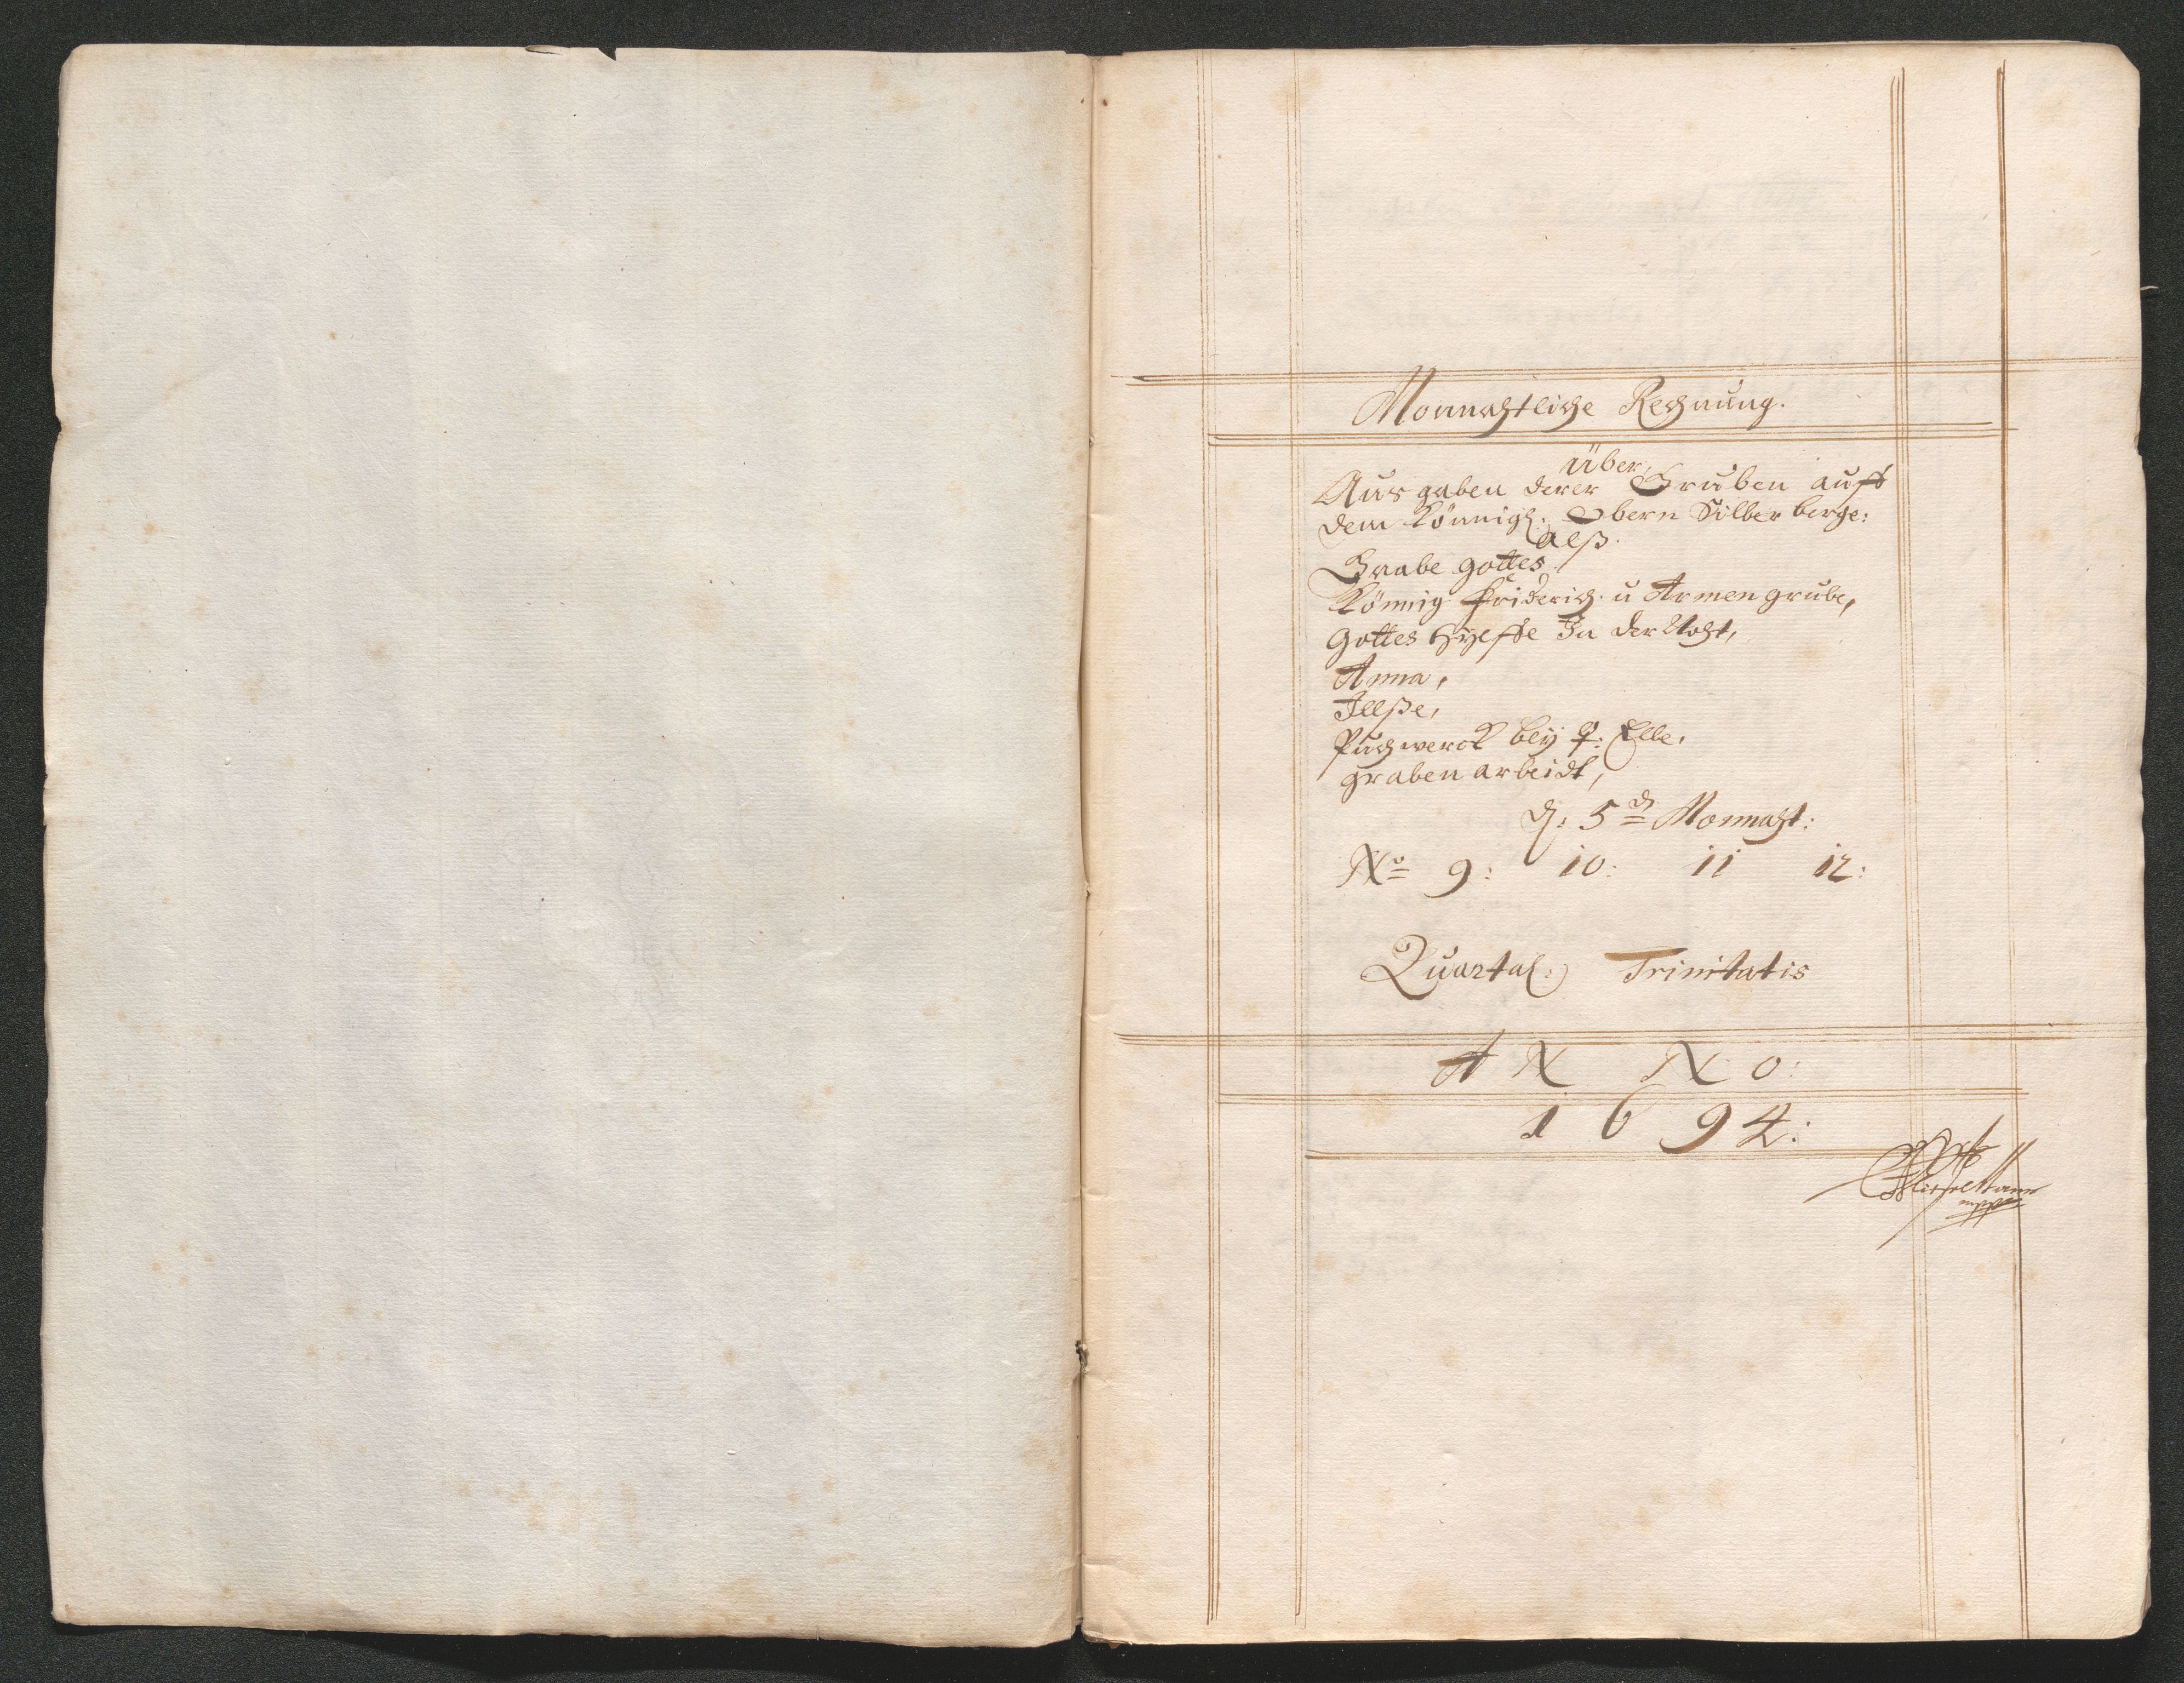 Monnahtliche Rechnung.
Über,
Aus gaben derer Gruben auff
dem Könnigl: Obern Silber berge:
Alß.
Gaabe gottes
Könnig Friderich: u Armen grube,
Gottes Hylffe In der Noht,
Anna,
Illße,
Puchwerck beÿ Elbe.
graben arbeidt,
d: 5 Monnaht:
No 9: 10: 11 12:
Quartal: Trinitatis
AN NO:
1694: